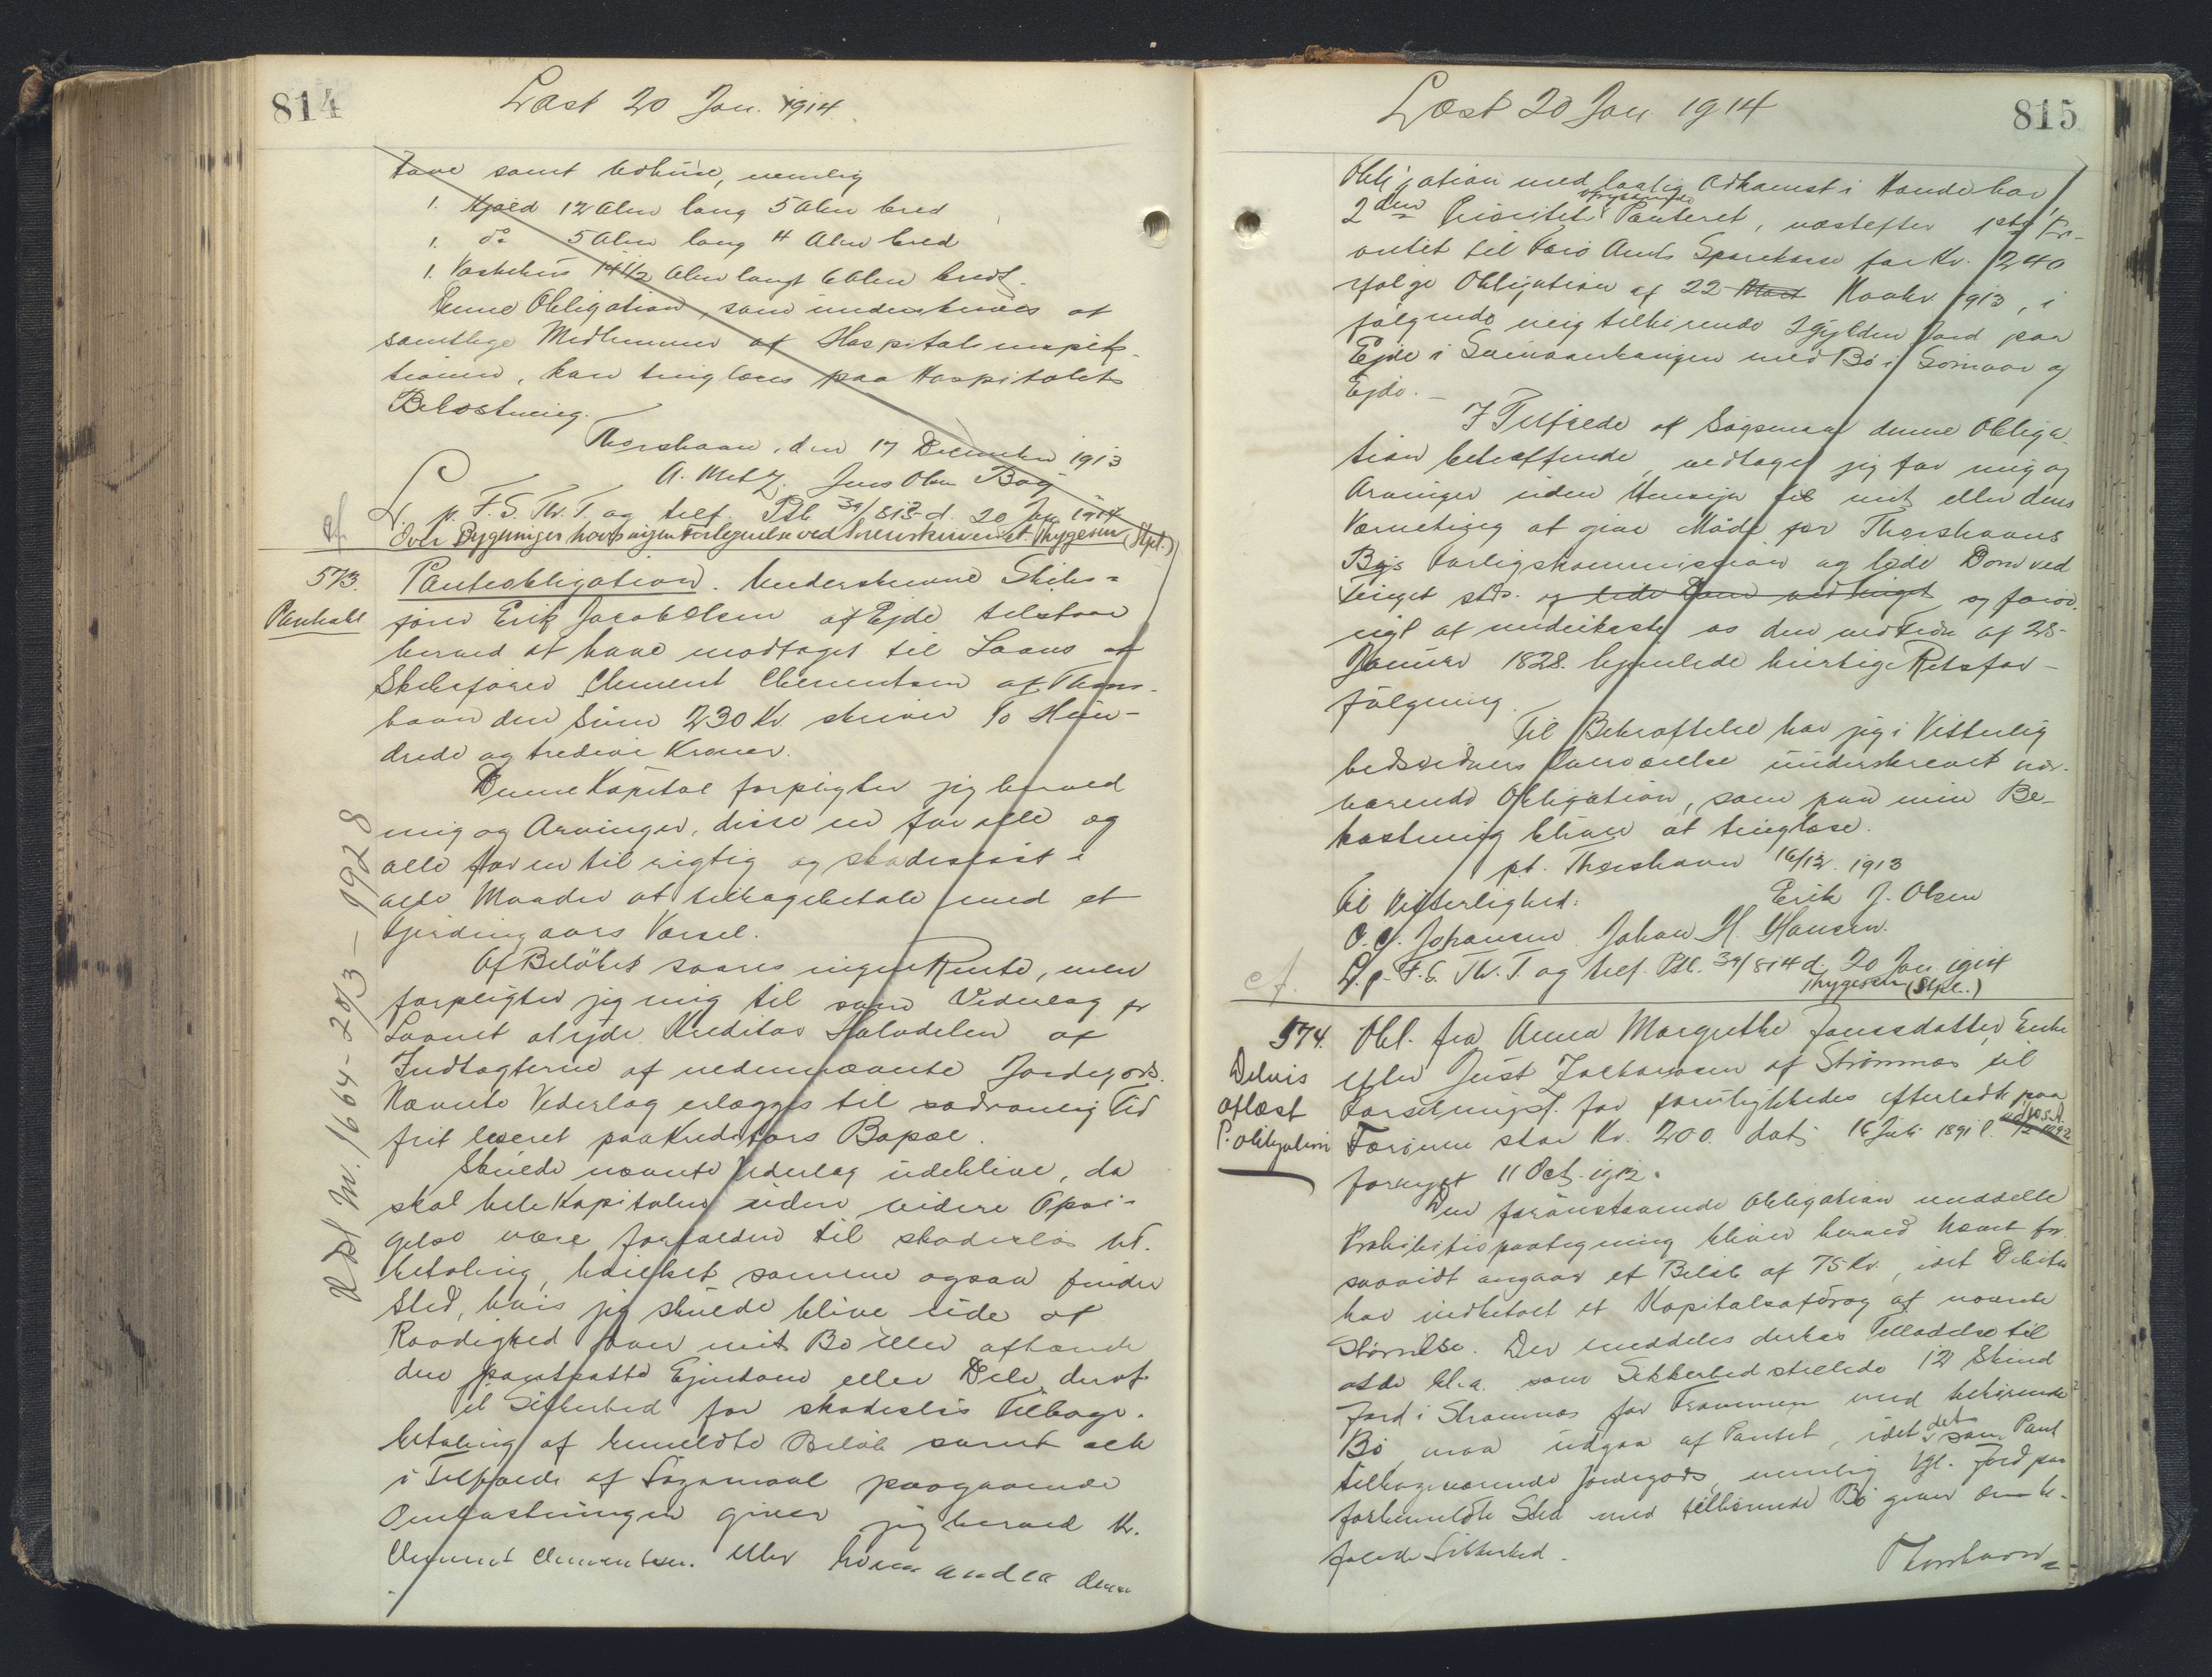 814
Læst 20 Jan. 1914.
have samt Udhuse, nemlig
1. Hjald 12 Alen lang 5 Alen bred
1. do 5 Alen lang 4 Alen bred
1. Vaskehus 14 1/2 Alen langt 6 Alen bredt.
Denne Obligation, som underskrives af
samtlige Medlemmer af Hospitalsinspek-
tionen, kan tinglæses paa Hospitalets
Bekostning.
Thorshavn, den 17 December 1913
A. Metz. Jens Olsen Bøg
L. p. F. S. Th. T. og tilf. Ptb. 39/813 d. 20 Jan 1914
Over Bygninger haves ingen Forlegnelse ved Sorenskriveriet. Thygesen (Stpl.)
573.
Panteobl
Panteobligation. Underskrevne Skibs=
fører Erik Jacob Olsen af Ejde tilstaar
herved at have modtaget til Laans af
Skibsfører Clement Clementsen af Thors-
havn den Sum 230 Kr. skriver To Hun-
drede og tredive Kroner.
Denne Kapital forpligter jeg herved
mig og Arvinger, disse en for alle og
alle for en til rigtig og skadesløst i
alle Maader at tilbagebetale med et
Fjerdingaars Varsel.
Af Beløbet svares ingen Rente, men
forpligter jeg mig til som Vederlag for
Laanet at yde Kreditor Halvdelen af
Indtægterne af nedennævnte Jordegods.
Nævnte Vederlag erlægges til sædvanlig Tid
frit leveret paa Kreditors Bopæl.
Skulde nævnte Vederlag udeblive, da
skal hele Kapitalen uden videre Opsi-
gelse være forfalden til skadesløs Ud-
betaling, hvilket samme ogsaa finder
Sted, hvis jeg skulde blive ude af
Raadighed over mit Bo eller afhænde
den pantsatte Ejendom eller Dele deraf.
Til Sikkerhed for skadesløs Tilbage-
betaling af bemeldte Beløb samt alle
i Tilfælde af Søgsmaal paagaaende
Omkostninger giver jeg herved Hr.
Clement Clementsen eller hvem anden denne
815
Læst 20 Jan 1914
Obligation med lovlig Adkomst i Hænde har
oprykkende
2den Prioritets Panteret, næstefter 1ste Pri-
oritet til Færø Amts Sparekasse for Kr. 240
ifølge Obligation af 22 Novbr 1913, i
følgende mig tilhørende 2 Gylden Jord paa
Ejde i med Bø i og
Ejde. –
I Tilfælde af Søgsmaal denne Obliga-
tion betræffende, vedtager jeg for mig og
Arvinger uden Hensyn til mit eller deres
Værneting at give Møde for Thorshavns
Bys Forligskommission og lide Dom ved
Tinget sts. og lide Dom ved Tinget og forøv-
rigt at underkaste os den ved Frdn af 28-
Januar 1828 hjemlede hurtige Retsfor-
følgning.
Til Bekræftelse har jeg i Vitterlig-
hedsvidners Overværelse underskrevet nær-
værende Obligation, som paa min Be-
kostning bliver at tinglæse.
pt. Thorshavn 16/12. 1913
Til Vitterlighed: Erik J. Olsen
O. J. Johansen Johan H. Hansen.
L. p. F. S. Th. T. og tilf. Ptl. 39/814 d. 20 Jan 1914
Thygesen (Stpl.)
574.
Delvis
aflæst
P. obligation
Obl. fra Anna Margrethe Joensdatter, Enke
efter Just Zachariasen af Strømnæs til
Forsikringsf. for paa
Færøerne stor Kr. 200. dat. 16 Juli 1891 l.
fornyet 11 Oct. 1912.
Den foranstaaende Obligation meddelte
Prohibitivpaategning bliver herved hævet for-
saavidt angaar et Beløb af 75 Kr., idet Debitor
har indbetalt et Kapitalsafdrag af nævnte
Størrelse. Der meddeles derhos Tilladelse til
at de bl. a. som Sikkerhed stillede 12 Skind
Jord i Strømnæs med tilhørende
Bø maa udgaa af Pantet, idet det som Pant
tilbageværende Jordegods, nemlig 1 Gl. Jord paa
forbemeldte Sted med tilhørende Bø giver
Sikkerhed.
Thorshavn =
Udsl Nr. 1664 – 20/3 – 1928